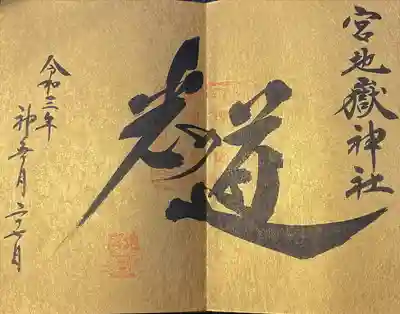 宮地嶽神社
光の道
令和三年
神無月二十七日